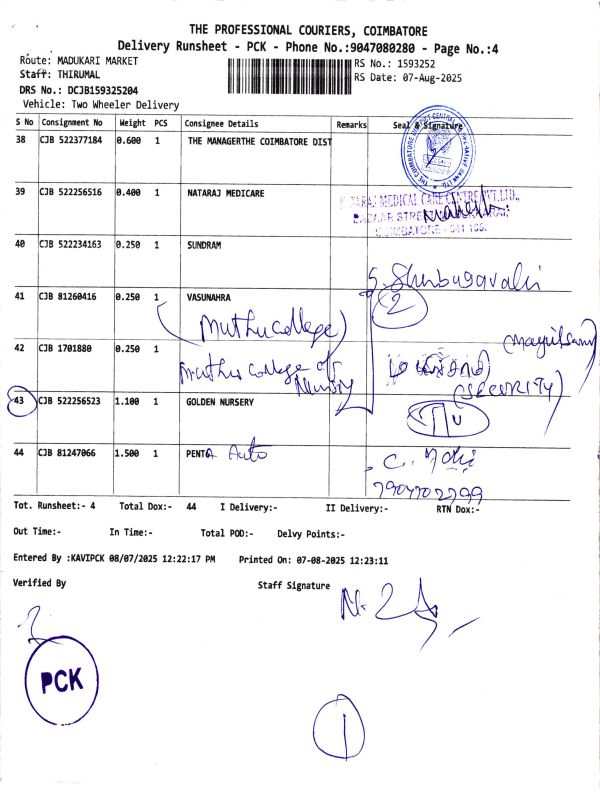 THE PROFESSIONAL COURIERS, COIMBATORE
Delivery Runsheet - PCK - Phone No.:9047080280 - Page No.:4
Route: MADUKARI MARKET
RS No.: 1593252
Staff: THIRUMAL
RS Date: 07-Aug-2025
DRS No.: DCJB159325204
Vehicle: Two Wheeler Delivery
S No Consignment No Weight PCS Consignee Details Remarks Seal & Signature
38 CJB 522377184 0.600 1 THE MANAGERTHE COIMBATORE DIST
39 CJB 522256516 0.400 1 NATARAJ MEDICARE
MEDICAL CARE CENTRE PVT.LTD.,
COIMBATORE - 641 105.
40 CJB 522234163 0.250 1 SUNDRAM
S. Shenbagavalli
41 CJB 81260416 0.250 1 VASUNAHRA
2
Muthu College)
42 CJB 1701880 0.250 1
Muthus College of
Nursing
(SECURITY)
43 CJB 522256523 1.100 1 GOLDEN NURSERY
44 CJB 81247066 1.500 1 PENTA Auto
7904702799
Tot. Runsheet:- 4 Total Dox:- 44 I Delivery:- II Delivery:- RTN Dox:-
Out Time:- In Time:- Total POD:- Delvy Points:-
Entered By :KAVIPCK 08/07/2025 12:22:17 PM Printed On: 07-08-2025 12:23:11
Verified By Staff Signature
PCK
1